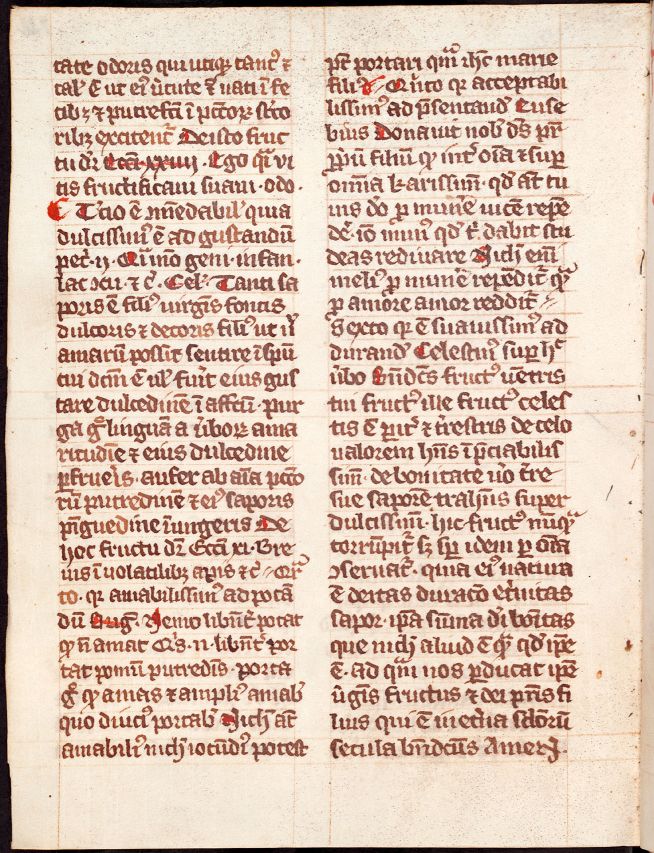 tate odoris qui utiqꝫ tant᷒ ⁊
tal᷒ ē ut ei᷒ v̾tute ē uati ī fe
tibꝫ ⁊ putrefcī ī pcc̄oꝝ stc̄o
ribꝫ excitent᷑ De isto fruc
tu dr̄ Ecc̄i xxiiij · Ego q̄ vi
tis fructificaui suaui · odo ·
T̾cio ē · qui a
dulcissim᷒ ē ad gustandum
pet᷑ · ij · Q̄ mō geni · infan ·
lac ⁊ c̄ · Cel᷒ · Tanti sa
poris ē fili᷒ uirgīs fontis
dulcoris ⁊ decoris fili᷒ ut
amarum possit sentire ī sp̄u
tui ē ul᷒ eius gus
tare dulcedinē ī affc̄u · pur
ga g̊ linguā a v̾boꝝ ama
ritudīe ⁊ eius dulcedine
ꝑfrue̾is · aufer ab aīa pcc̄o
rū putredinē ⁊ ei᷒ saporis
pīguedine īungeris De
hoc fructu dr̄ Ecc̄i xi · Bre
uis ī uolatilibꝫ apis ⁊ c̄ · Q̾r
to · qꝛ amabilissim᷒ ad portā
dū Aug᷒ · Nemo libent᷑ portat
qđ n̄ amat · n · libent᷑ por
tat pomū putredīs · porta
g̊ qđ amas ⁊ ampli᷒ amab᷒
quo diuci᷒ portab᷒ Nichil aūt
amabili᷒ nichil iocūdi᷒ potest
pt̄ portari qm̄ ihc᷒ marie
fili᷒ · Q̾nto qꝛ acceptabi
lissim᷒ ad p̄sentand̄ Euse
bius Donauit nob᷒ dn̄s pr̄
ꝓp̄ium filium qđ int᷑ oīa ⁊ sup̄
omnia karissim̄ · qđ aūt tu
uis do ꝑ mun̄e uicē repē
de᷑ · iō mun᷒ qđ t᷑ dabit stu
deas rediuare Nichil enī
meli᷒ ꝑ mun̄e rependit᷑ q̄
ꝑ amore amor reddit᷑
Sexto qꝛ ē suauissim᷒ ad
durand̄ Celestin᷒ suꝑ h᷒
v̾bo Bn̄dc̄s fruct᷒ uent̾s
tui fruct᷒ ille fruct᷒ celes
tis ē pit᷑ ⁊ t̾restris de celo
ualorem hn̄s ī p̄ciabilis
sim̄ · de bonitate v̊o t̾re
sue saporē trahn̄s super
dulcissim̄ · hic fruct᷒ nūq̄
corrūpit᷑ sꝫ sp̄ idem ꝑ oīa
ꝯseruat᷑ · quia ei᷒ natura
ē deitas duraco᷒ et̾nitas
sapor · ip̄a sūma di᷒ boītas
que nichil aliud ē q̄ qđ ip̄e
ē · ad q̄m nos ꝑducat ip̄e
v̾gīs fructus ⁊ dei pr̄is fi
lius qui ē in et̾na sc̄lōrū
secula bn̄dictus Amen ·